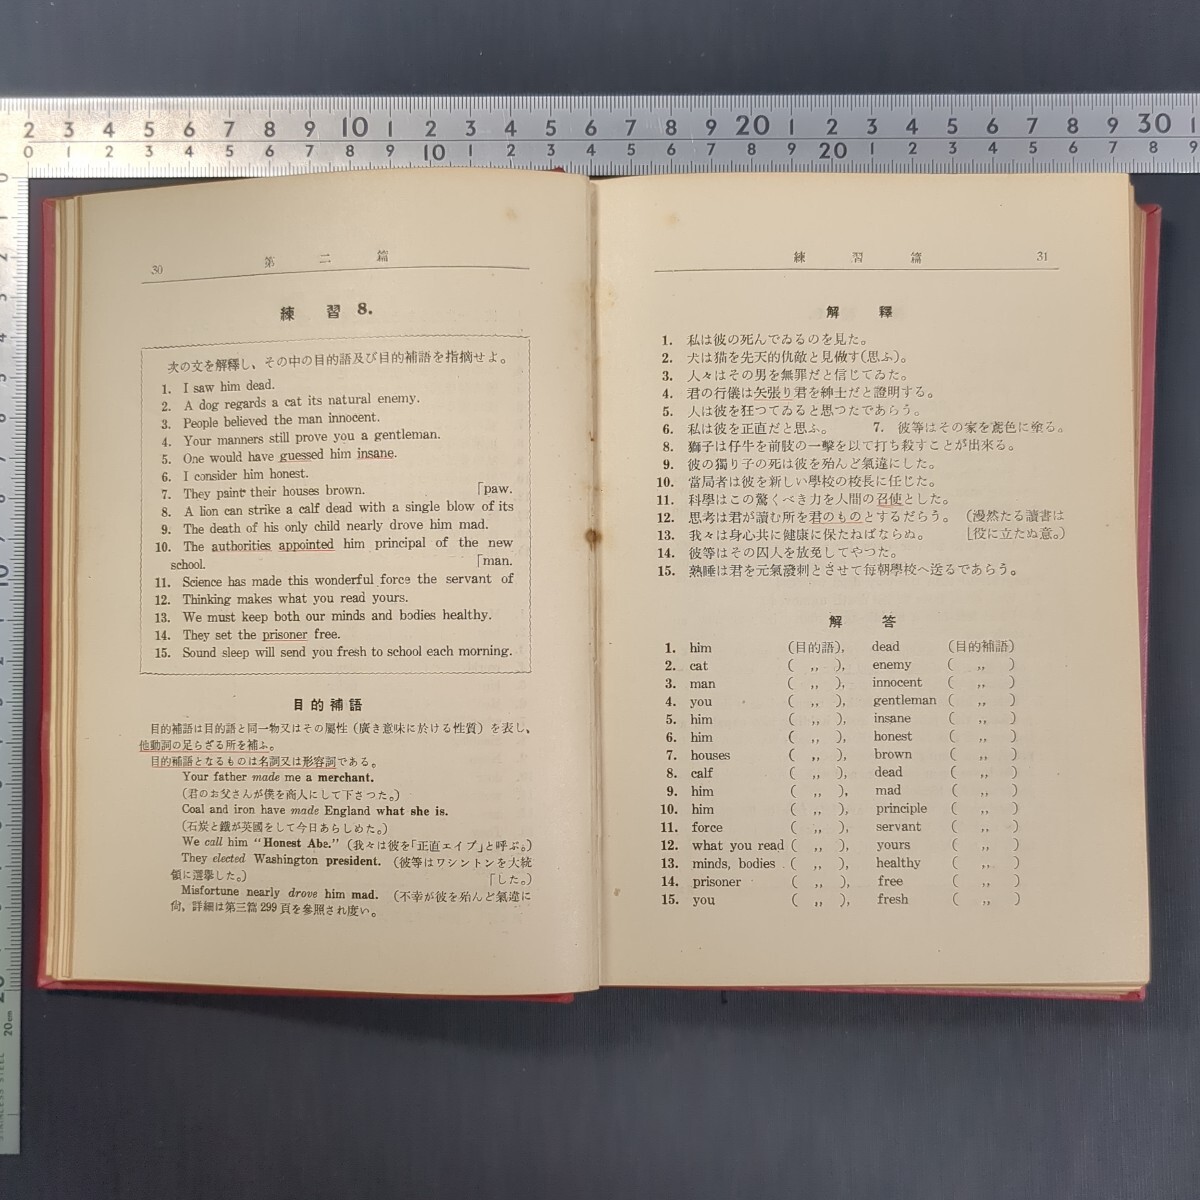 2 3 4 5 6 7 8 9 10 1 2 3 4 5 6 7 8 9 20 1 2 3 4 5 6 7 8 9 30 1
0 1 2 3 4 5 6 7 8 9 10 1 2 3 4 5 6 7 8 9 20 1 2 3 4 5 6 7 8 9
20cm
STAINLESS STEEL
30 第二篇
練習 8.
次の文を解釋し、その中の目的語及び目的補語を指摘せよ。
1. I saw him dead.
2. A dog regards a cat its natural enemy.
3. People believed the man innocent.
4. Your manners still prove you a gentleman.
5. One would have guessed him insane.
6. I consider him honest.
7. They paint their houses brown. 「paw.
8. A lion can strike a calf dead with a single blow of its
9. The death of his only child nearly drove him mad.
10. The authorities appointed him principal of the new
school. 「man.
11. Science has made this wonderful force the servant of
12. Thinking makes what you read yours.
13. We must keep both our minds and bodies healthy.
14. They set the prisoner free.
15. Sound sleep will send you fresh to school each morning.
目的補語
目的補語は目的語と同一物又はその屬性（廣き意味に於ける性質）を表し、
他動詞の足らざる所を補ふ。
目的補語となるものは名詞又は形容詞である。
Your father made me a merchant.
(君のお父さんが僕を商人にして下さつた。)
Coal and iron have made England what she is.
(石炭と鐵が英國をして今日あらしめた。)
We call him "Honest Abe." (我々は彼を「正直エイブ」と呼ぶ。)
They elected Washington president. (彼等はワシントンを大統
領に選擧した。) 「した。)
Misfortune nearly drove him mad. (不幸が彼を殆んど氣違に
尙, 詳細は第三篇 299 頁を參照され度い。
練習篇 31
解釋
1. 私は彼の死んでゐるのを見た。
2. 犬は猫を先天的仇敵と見做す(思ふ)。
3. 人々はその男を無罪だと信じてゐた。
4. 君の行儀は矢張り君を紳士だと證明する。
5. 人は彼を狂つてゐると思つたであらう。
6. 私は彼を正直だと思ふ。 7. 彼等はその家を鳶色に塗る。
8. 獅子は仔牛を前肢の一擊を以て打ち殺すことが出來る。
9. 彼の獨り子の死は彼を殆んど氣違にした。
10. 當局者は彼を新しい學校の校長に任じた。
11. 科學はこの驚くべき力を人間の召使とした。
12. 思考は君が讀む所を君のものとするだらう。 (漫然たる讀書は
13. 我々は身心共に健康に保たねばならぬ。 [役に立たぬ意。)
14. 彼等はその囚人を放免してやつた。
15. 熟睡は君を元氣潑刺とさせて每朝學校へ送るであらう。
解答
1. him (目的語), dead (目的補語)
2. cat ( 〃 ), enemy ( 〃 )
3. man ( 〃 ), innocent ( 〃 )
4. you ( 〃 ), gentleman ( 〃 )
5. him ( 〃 ), insane ( 〃 )
6. him ( 〃 ), honest ( 〃 )
7. houses ( 〃 ), brown ( 〃 )
8. calf ( 〃 ), dead ( 〃 )
9. him ( 〃 ), mad ( 〃 )
10. him ( 〃 ), principle ( 〃 )
11. force ( 〃 ), servant ( 〃 )
12. what you read ( 〃 ), yours ( 〃 )
13. minds, bodies ( 〃 ), healthy ( 〃 )
14. prisoner ( 〃 ), free ( 〃 )
15. you ( 〃 ), fresh ( 〃 )